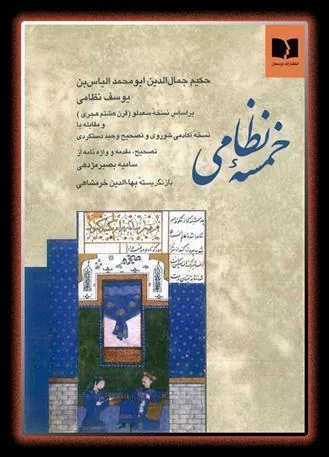 انتشارات دوستان
حکیم جمال‌الدین ابومحمد الیاس‌بن
یوسف نظامی
براساس نسخهٔ سعدلو (قرن هشتم هجری)
و مقابله با
نسخهٔ آکادمی شوروی و تصحیح وحید دستگردی
تصحیح، مقدمه و واژه نامه از
سامیه بصیر مژدهی
بازنگریسته بهاءالدین خرمشاهی
خمسهٔ نظامی